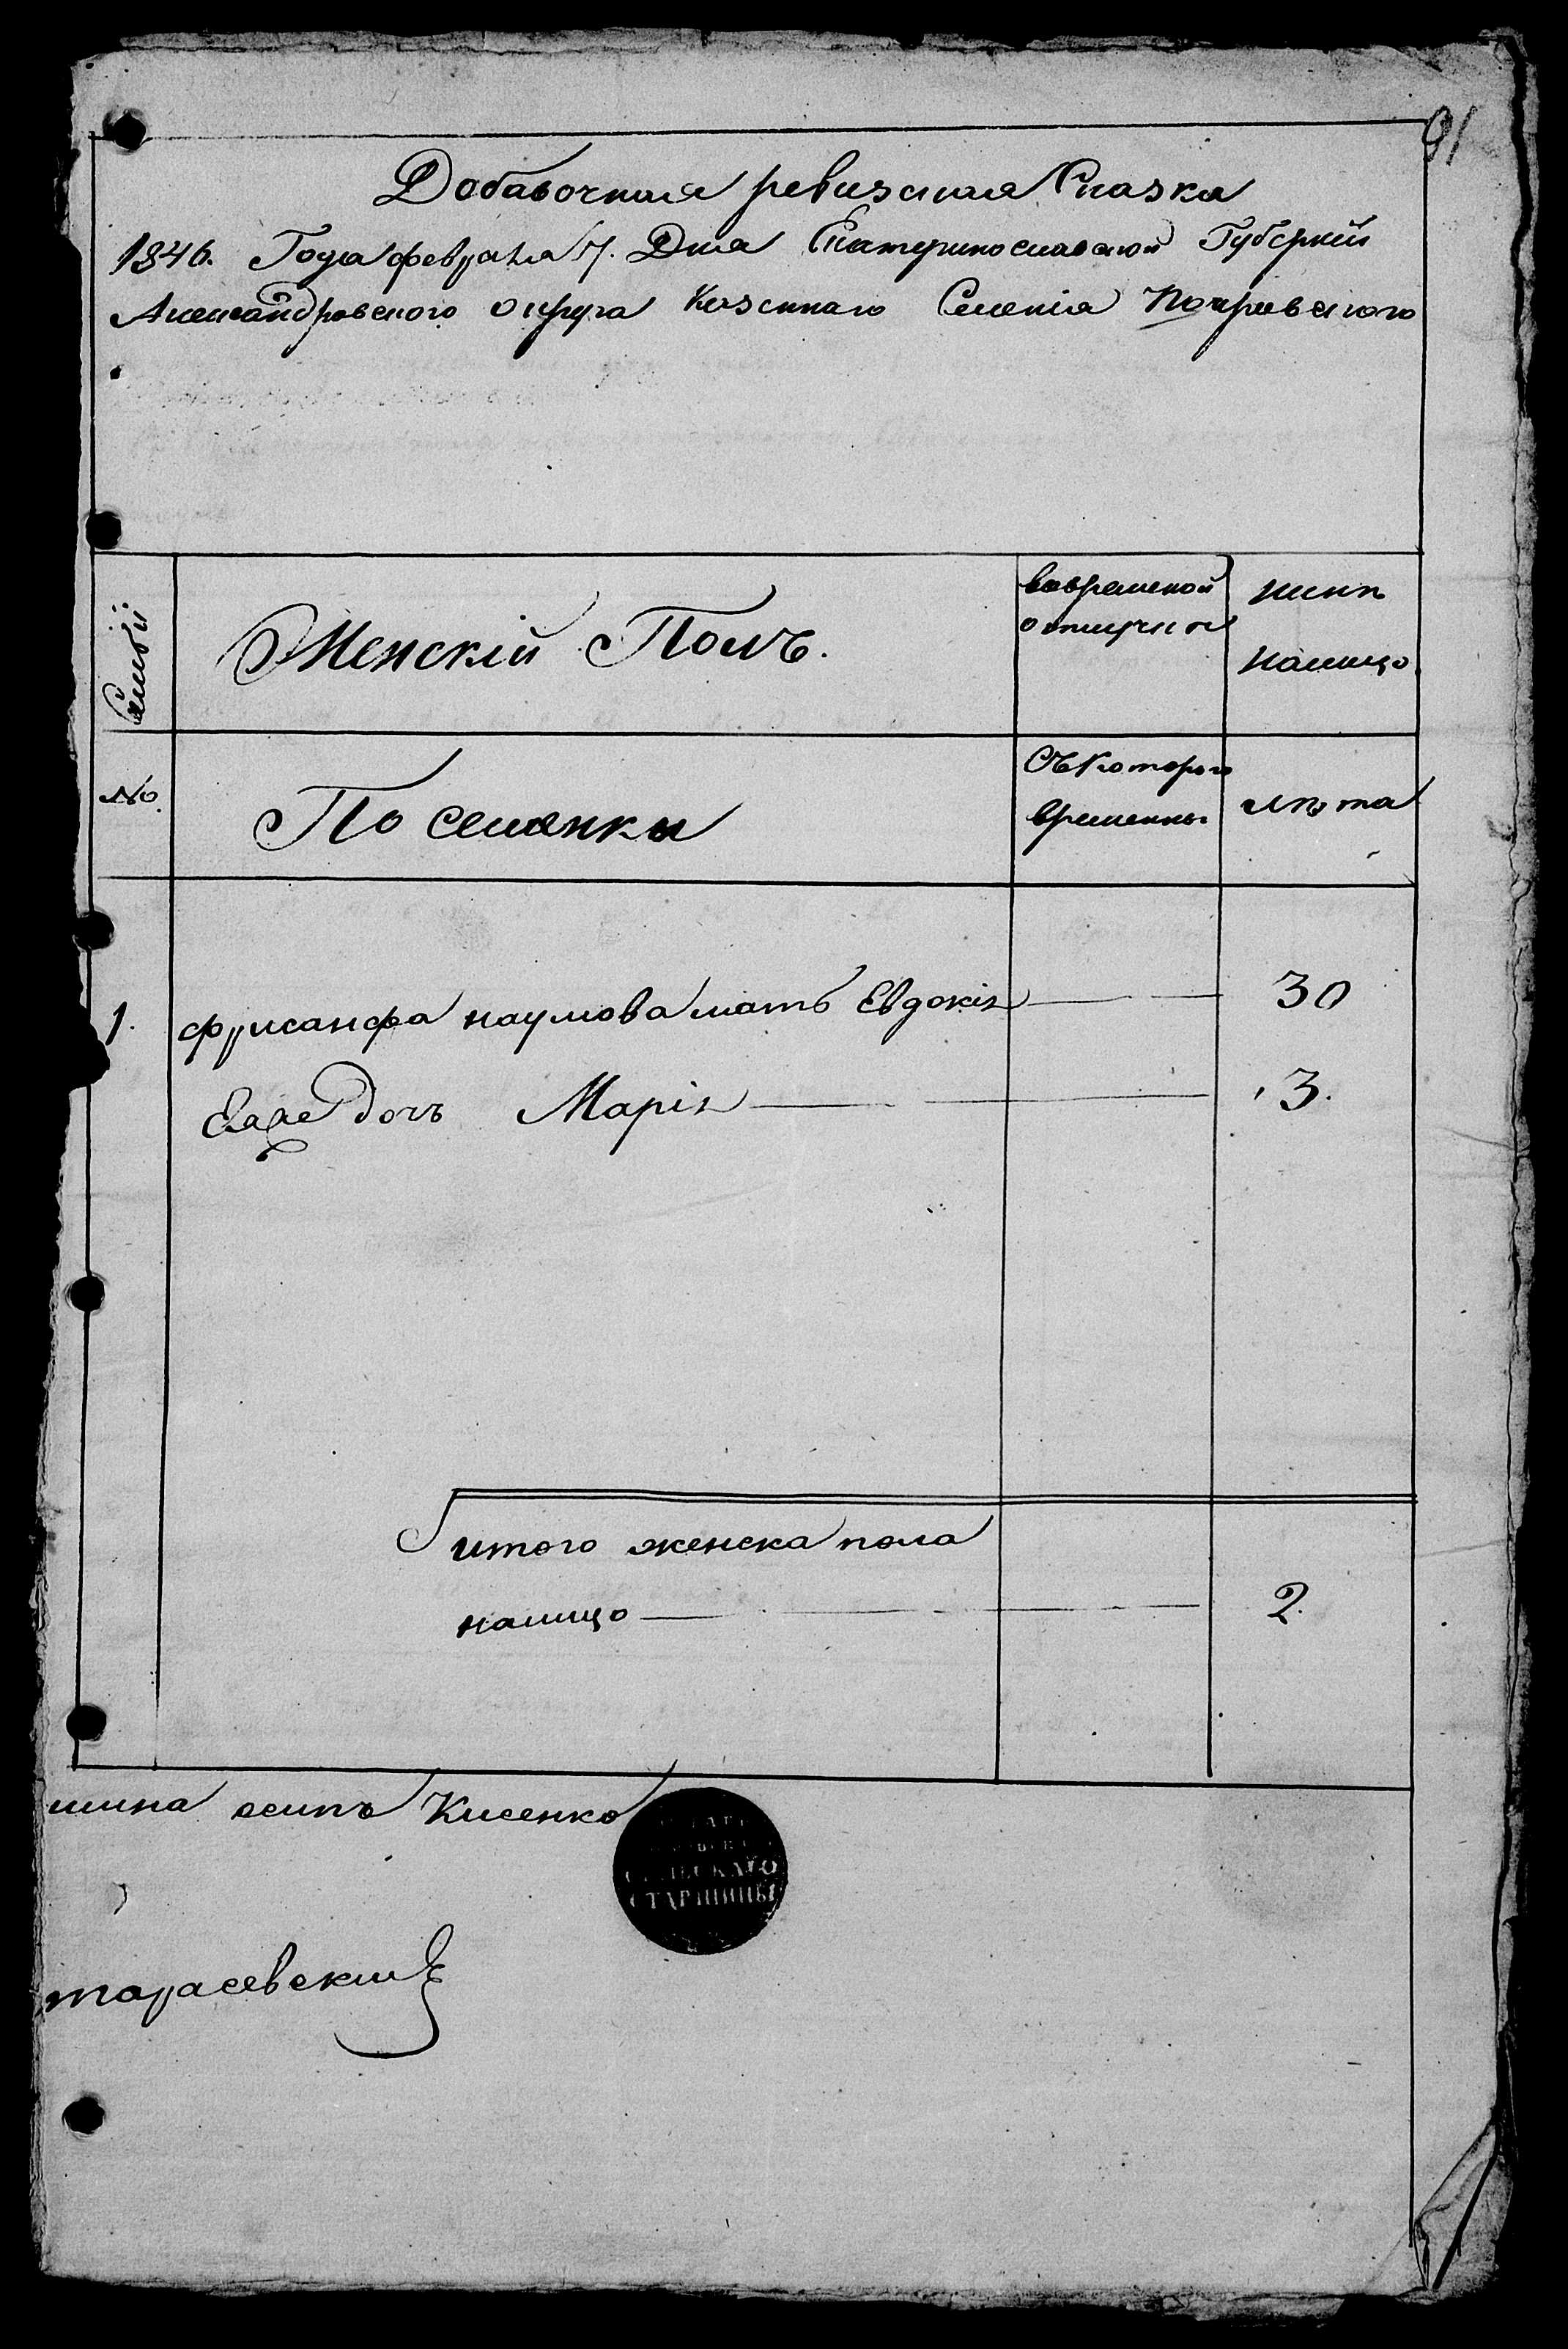 91
Добавочная ревизская Сказка
1846. Года февраля 7. Дня Екатеринославской Губернии
Александровского округа Казеннаго Селенія Покровского
Семьи
Женскій Полъ.
вовременой
отлучки
ныни
налицо.
№
Поселянки
Съкоторого
времянны
лѣта
1. фрисанфа наумова мать Евдокія 30
Егоже дочь Марія 3.
итого женска пола
налицо 2.
шина осипъ Кисенко
СКАГО
СТАРШИНЫ
тарасевский